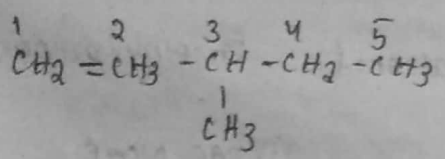 1 2 3 4 5
CH2 = CH3 - CH - CH2 - CH3
|
CH3